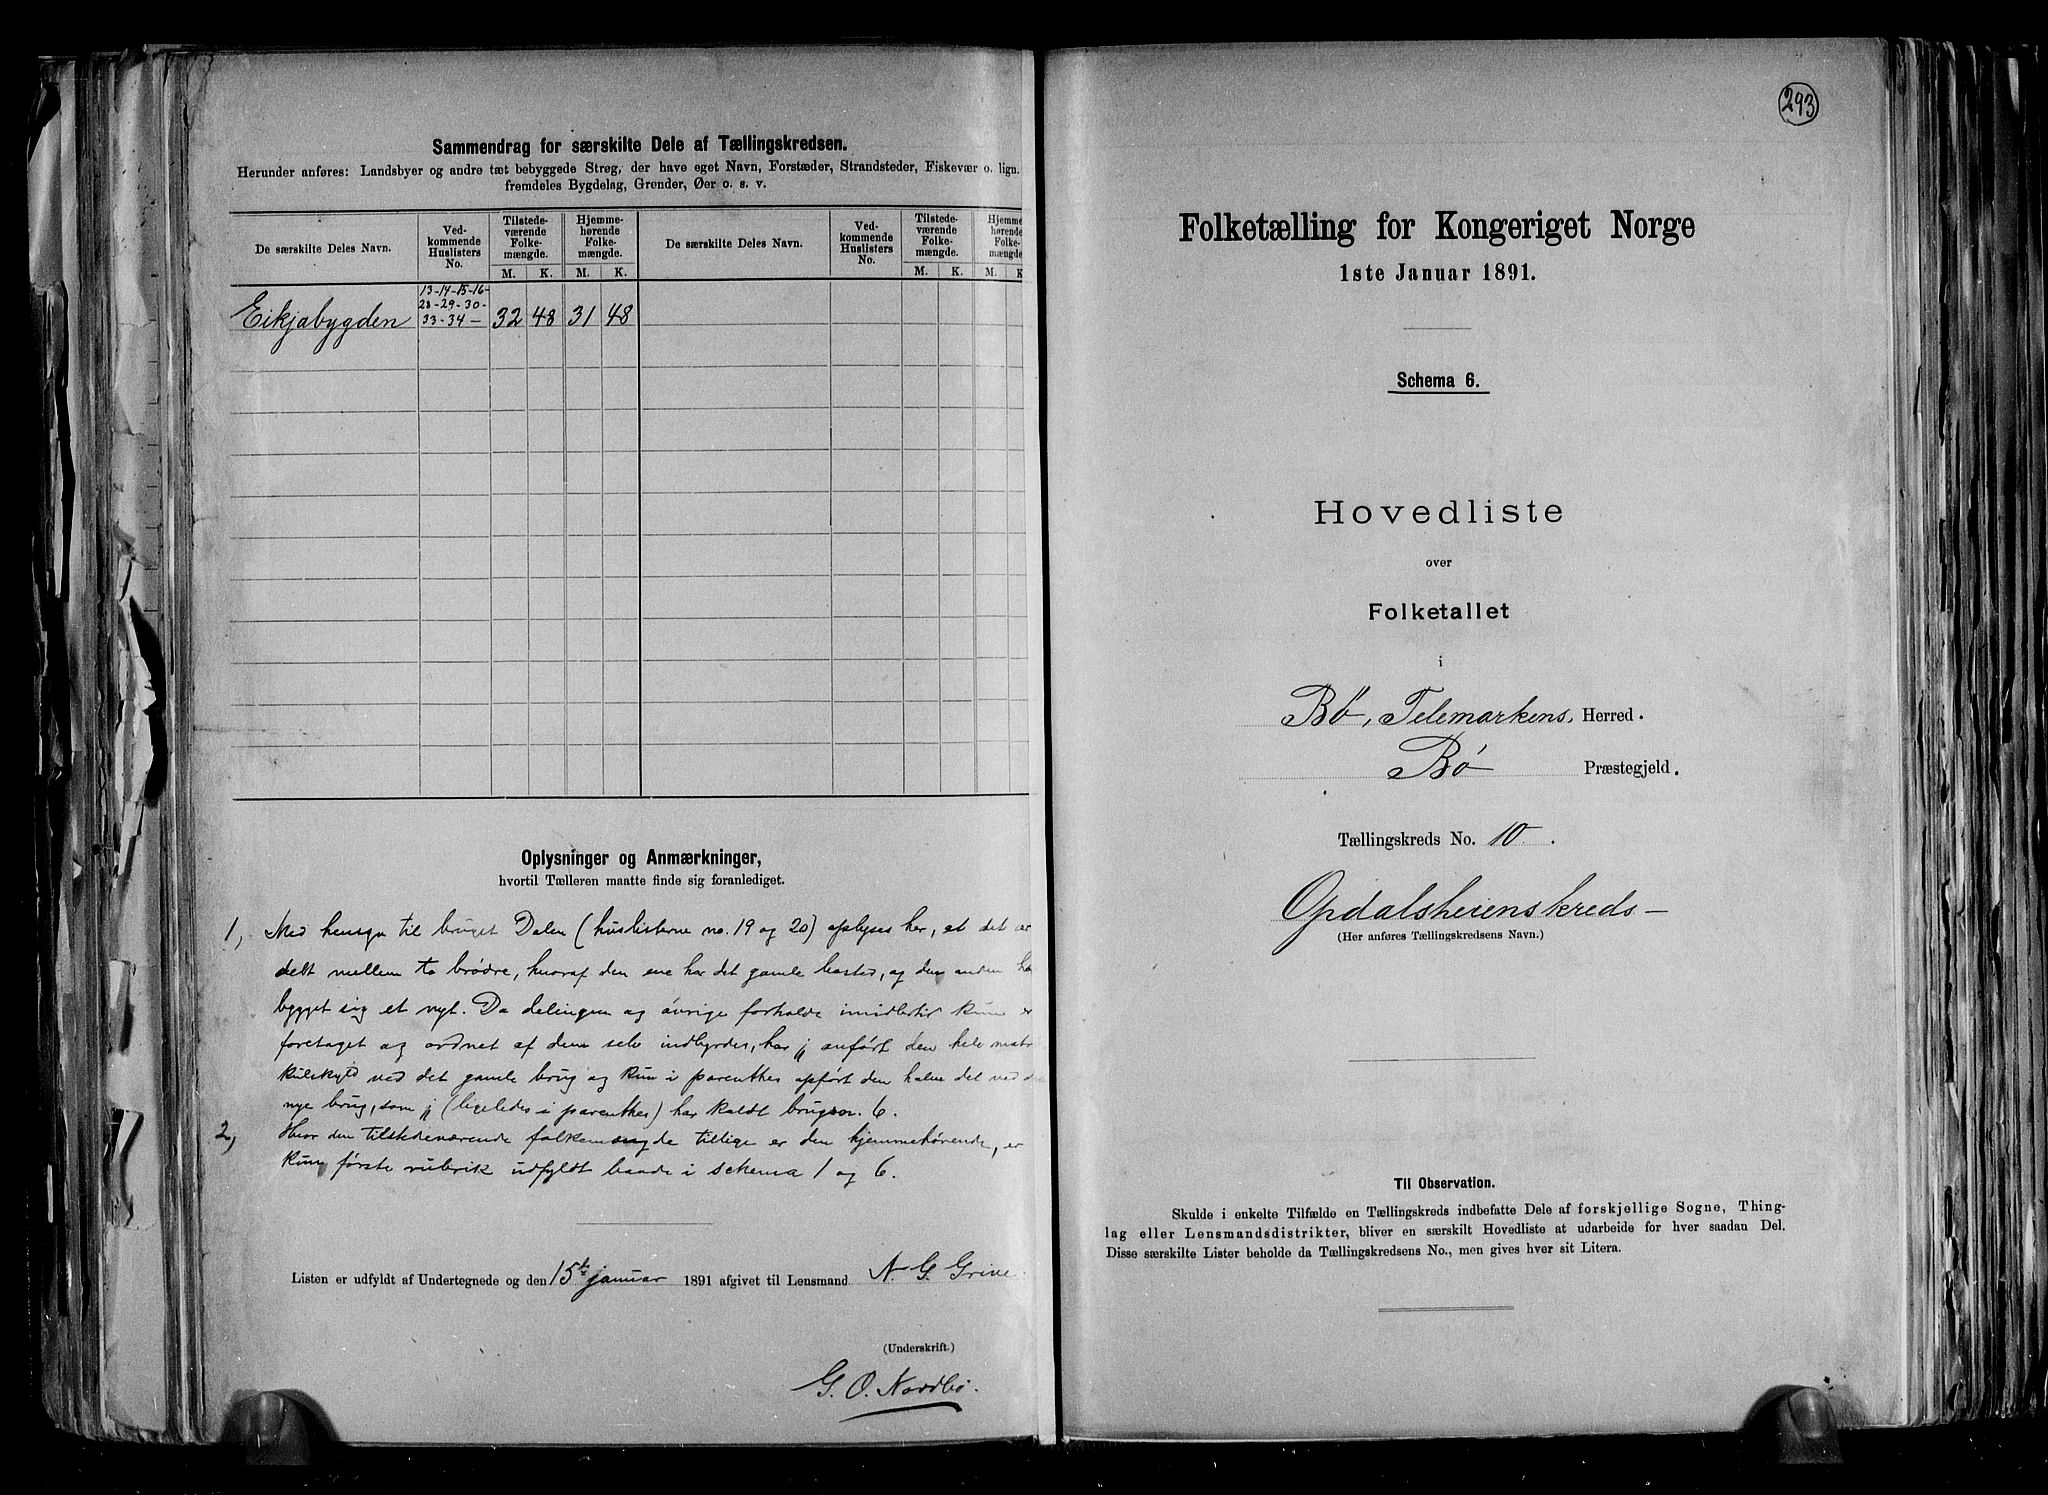 Sammendrag for særskilte Dele af Tællingskredsen.
Herunder anføres: Landsbyer og andre tæt bebyggede Strøg, der have eget Navn, Forstæder, Strandsteder, Fiskevær o. lign.
fremdeles Bygdelag, Grender, Øer o. s. v.
De særskilte Deles Navn.
Ved-
kommende
Huslisters
No.
Tilstede-
værende
Folke-
mængde.
Hjemme-
hørende
Folke-
mængde.
De særskilte Deles Navn.
Ved-
kommende
Huslisters
No.
Tilstede-
værende
Folke-
mængde.
Hjemme
hørende
Folke-
mængde
M. K. M. K. M. K. M. K
13-14-15-16-
28-29-30-
Eikjabygden 33-34- 32 48 31 48
Oplysninger og Anmærkninger,
hvortil Tælleren maatte finde sig foranlediget.
1, Med hensyn til bruget Dalen (huslisterne no. 19 og 20) oplyses her, at det er
delt mellem to brødre, hvoraf den ene har det gamle bosted, og den anden ha
bygget sig et nyt. Da delingen og øvrige forholde imidlertid kun er
foretaget og ordnet af dem selv indbyrdes, har jeg anført den hele matr
kulskyld ved det gamle brug og kun i parenthes opført den halve del ved d
nye brug, som jeg (ligeledes i parenthes) har kaldt brugsnr. 6.
2, Hvor den tilstedeværende folkemængde tillige er den hjemmehørende, er
kun første rubrik udfyldt baade i schema 1 og 6.
Listen er udfyldt af Undertegnede og den 15de januar 1891 afgivet til Lensmand N. G. Grive
(Underskrift.)
G. O. Nordbø.
293
Folketælling for Kongeriget Norge
1ste Januar 1891.
Schema 6.
Hovedliste
over
Folketallet
i
Bø, Telemarkens, Herred.
Bø Præstegjeld.
Tællingskreds No. 10.
Opdalsheienskreds-
(Her anføres Tællingskredsens Navn.)
Til Observation.
Skulde i enkelte Tilfælde en Tællingskreds indbefatte Dele af forskjellige Sogne, Thing-
lag eller Lensmandsdistrikter, bliver en særskilt Hovedliste at udarbeide for hver saadan Del.
Disse særskilte Lister beholde da Tællingskredsens No., men gives hver sit Litera.